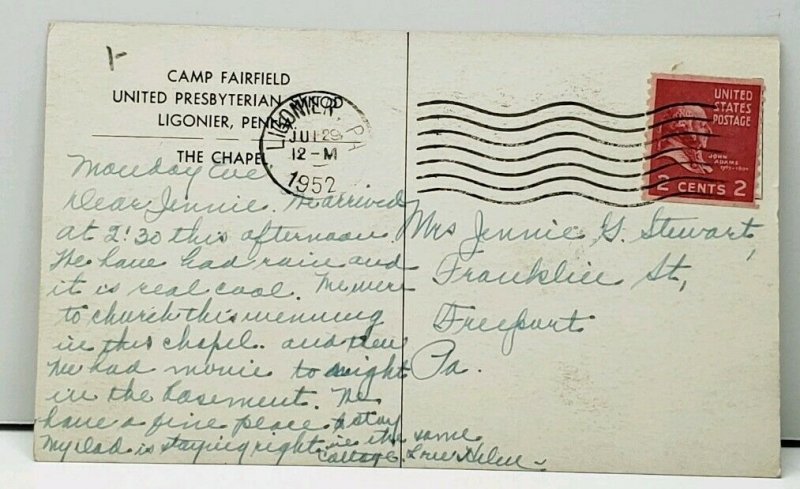 1-
CAMP FAIRFIELD
UNITED PRESBYTERIAN SYNOD
LIGONIER, PENNA
THE CHAPEL
LIGONIER, PA.
JUL 29
12-M
1952
UNITED
STATES
POSTAGE
JOHN
ADAMS
2 CENTS 2
Monday Eve
Dear Jennie. We arrived
at 2:30 this afternoon.
We have had rain and
it is real cool. We were
to church this evenning
in this chapel. and then
We had movie to night
in the basement. We
have a fine place to stay
My Dad is staying right in the same
cottage. Love Helen-
Mrs Jennie G. Stewart,
Franklin St,
Freeport
Pa.